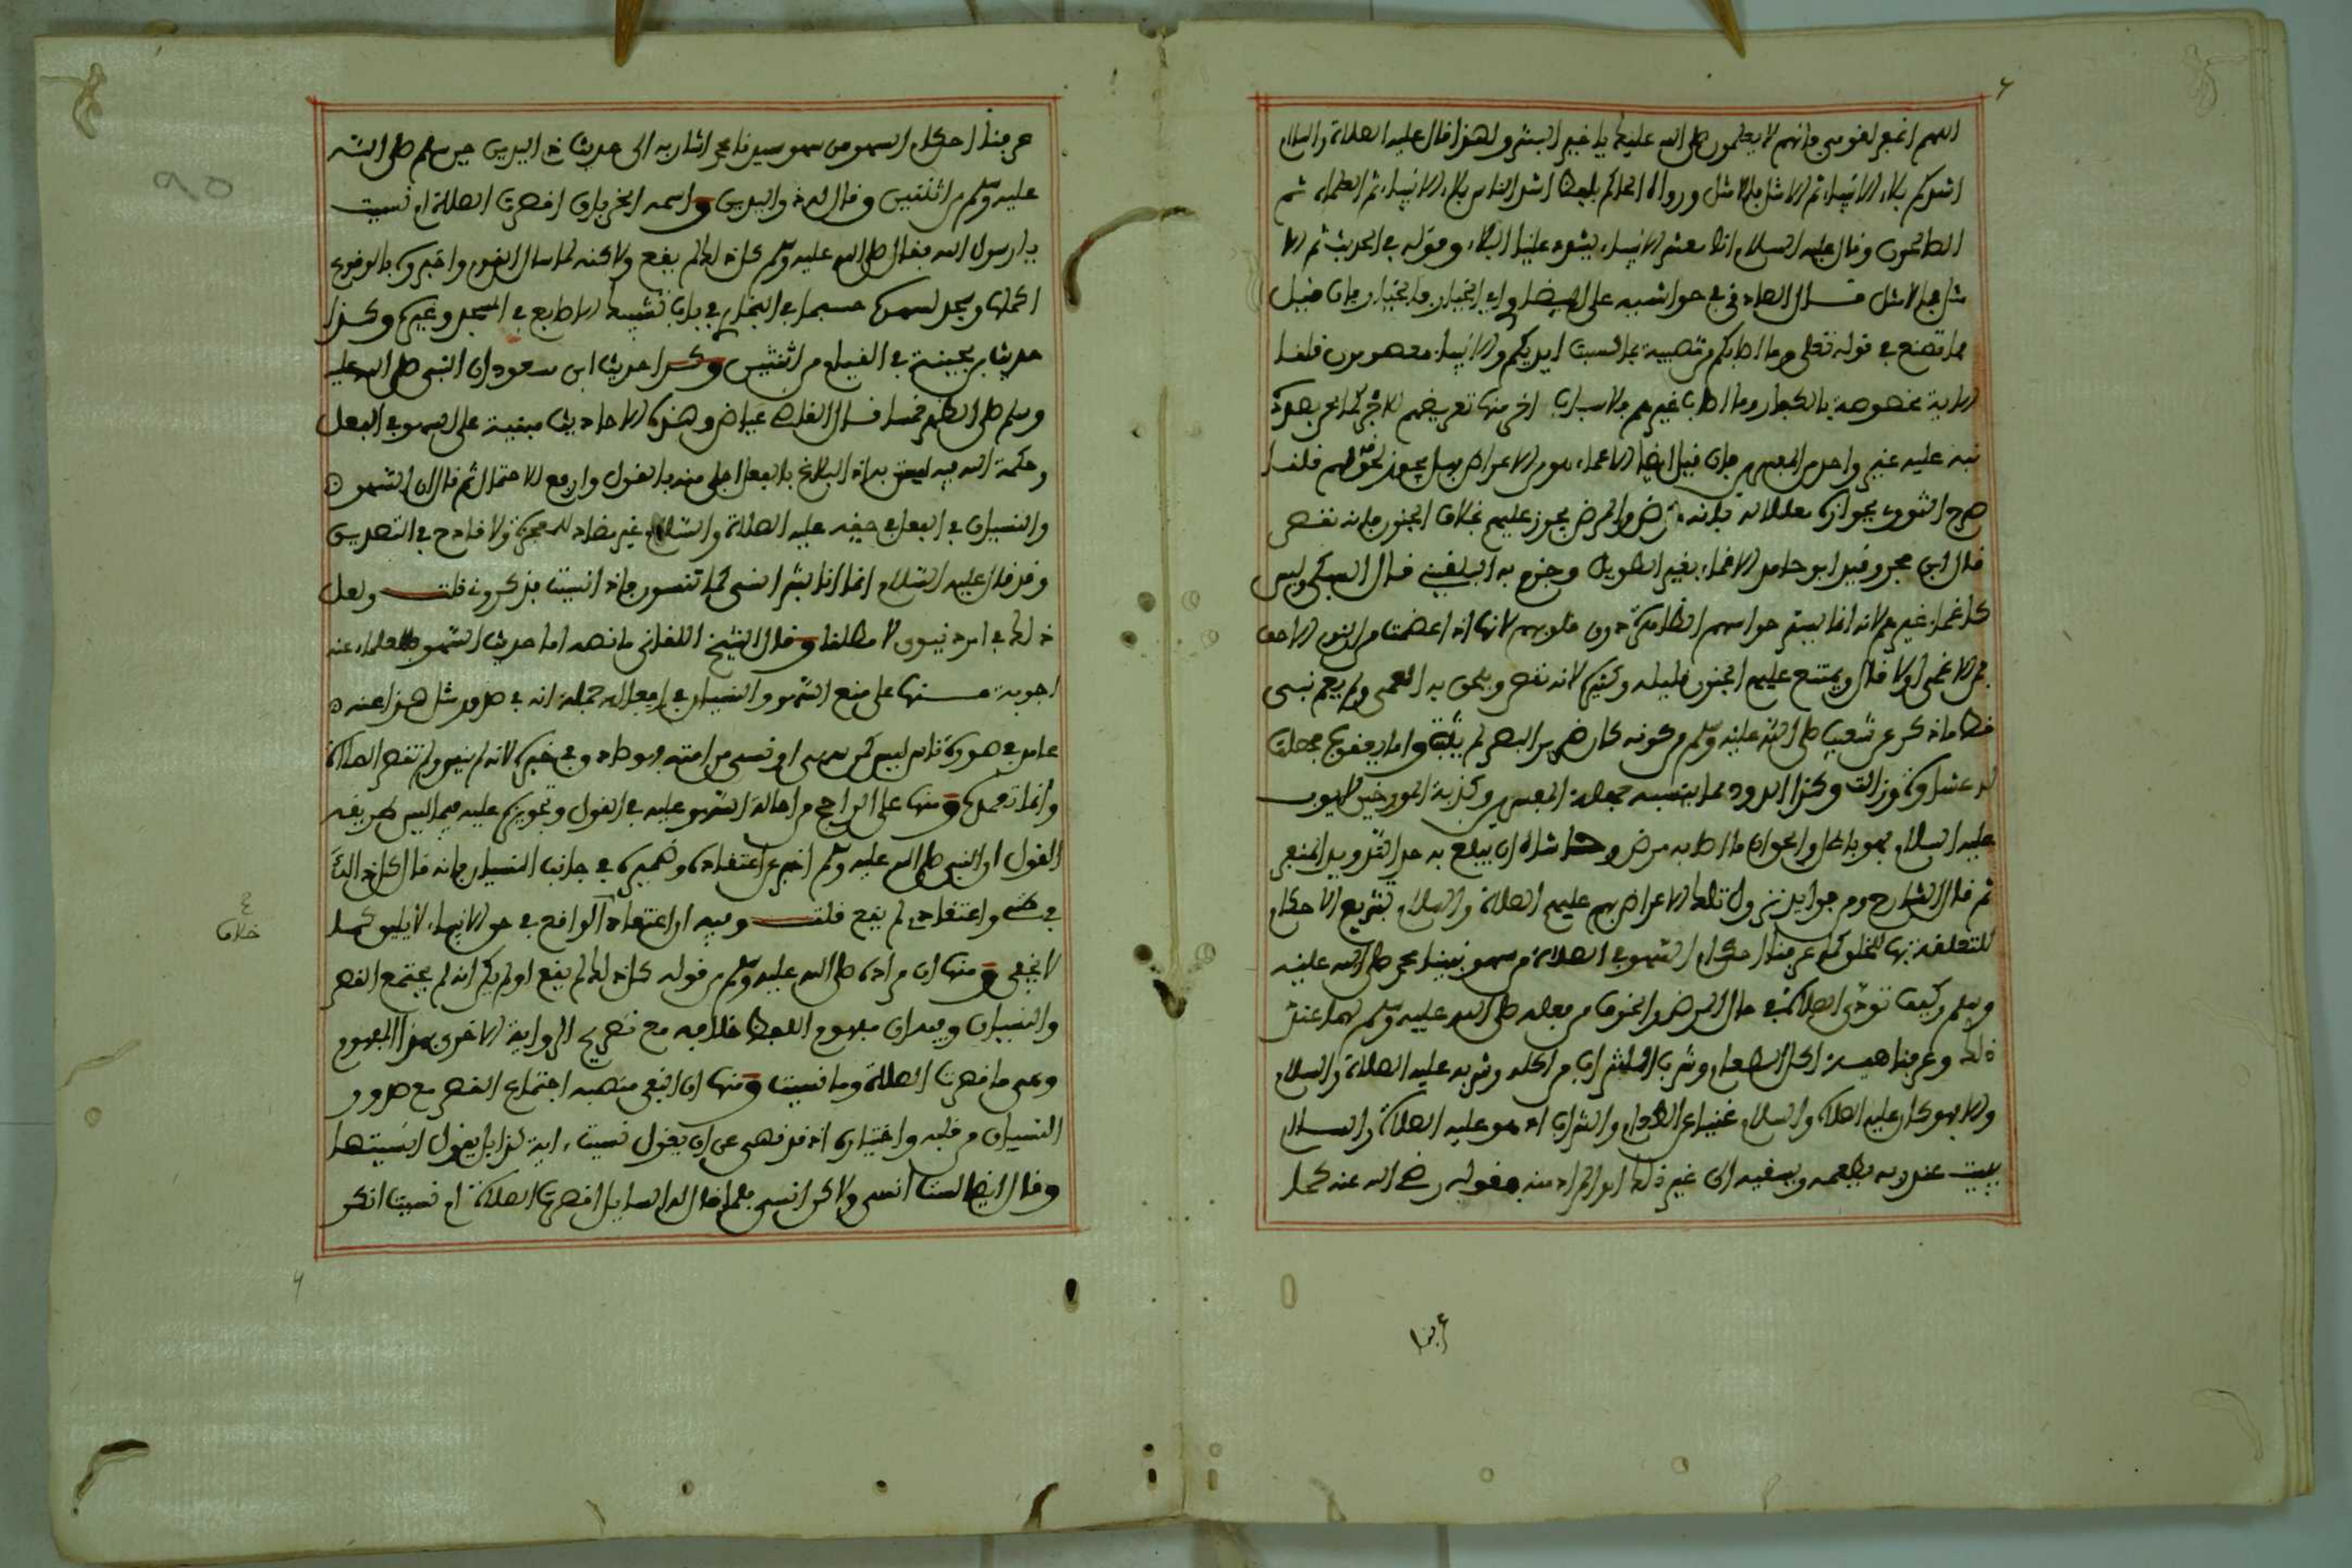 اللهم اغفر لقومي فإنهم لا يعلمون صلى الله عليك يا خير البشر ولهذا قال عليه الصلاة والسلام
اشدكم بلاء الانبياء ثم الامثل فالامثل ورواه الحاكم بلفظ اشد الناس بلاء الانبياء ثم العلماء ثم
الصالحون وقال عليه السلام انا معشر الانبياء يشدد علينا البلاء وقوله في الحديث ثم الا
مثل فالامثل قال العلامة في حواشيه على البيضاوي اي الخيار فالخيار فإن قيل
فما تصنع في قوله تعلى وما اصابكم من مصيبة بما كسبت ايديكم والانبياء معصومون قلنا
الاية مخصوصة بالكفار وما اصاب غيرهم فلاسباب اخر منها تعريضهم للاجر كما
نبه عليه غير واحد من المفسرين فإن قيل ايضا الاغماء من الاعراض فهل يجوز لحوقه لهم قلنا
صرح النووي بجوازه معللا له بأنه مرض والمرض يجوز عليهم بخلاف الجنون فإنه نقص
قال ابن حجر وقيد ابو حامد الاغماء بغير الطويل وجزم به البلقيني قال السبكي وليس
كاغماء غيرهم لانه انما يستر حواسهم الظاهرة دون قلوبهم لانها اذا عصمت من النوم الاخف
فمن الاغماء اولا قال ويمتنع عليهم الجنون قليله وكثيره لانه نقص ويلحق به العمى ولم يعم نبي
قط وما ذكر عن شعيب صلى الله عليه وسلم من كونه كان ضرير البصر لم يثبت واما يعقوب فحصلت
له غشاوة وزالت وكذا الدود مما يتسبه جهلة المفسرين وكذبة المورخين لايوب
عليه السلام فهو باطل والحق ان ما اصابه مرض وحاشاه ان يبلغ به حد التدويد المنفر
ثم قال الشارح ومن فوايد نزول تلك الاعراض بهم عليهم الصلاة والسلام تشريع الاحكام
المتعلقة بها للخلق كما عرفنا احكام السهو في الصلاة من سهو نبينا محمد صلى الله عليه
وسلم وكيف تؤدى الصلاة في حال المرض والخوف من فعله صلى الله عليه وسلم لها عند
ذلك وعرفنا هيئة اكل الطعام وشرب الشراب من اكله وشربه عليه الصلاة والسلام
والا فهو كان عليه الصلاة والسلام غنيا عن الطعام والشراب اذ هو عليه الصلاة والسلام
يبيت عند ربه يطعمه ويسقيه الى غير ذلك المراد منه فقوله رضي الله عنه كما
أبنا
عرفنا احكام السهو من سهو سيدنا محمد اشار به الى حديث ذي اليدين حين سلم صلى الله
عليه وسلم من اثنتين وقال له ذو اليدين واسمه الخرباق اقصرت الصلاة ام نسيت
يا رسول الله فقال صلى الله عليه وسلم كل ذلك لم يقع ولاكنه لما سال القوم واخبروه بالوقوع
اكملها وسجد لسهوه حسبما في البخاري في باب تشبيك الاصابع في المسجد وغيره وكذا
حديث ابن بحينة في القيام من اثنتين وكذا حديث ابن مسعود ان النبي صلى الله عليه
وسلم صلى الظهر خمسا قال القاضي عياض وهذه الاحاديث مبنية على السهو في الفعل
وحكمة الله فيه ليستن به اذ البلاغ بالفعل اجلى منه بالقول وارفع للاحتمال ثم قال ان السهو
والنسيان في الفعل في حقه عليه الصلاة والسلام غير مضاد للمعجزة ولا قادح في التصديق
وقد قال عليه السلام انما انا بشر انسى كما تنسون فاذا نسيت فذكروني قلت ولعل
ذلك في امر دنيوي لا مطلقا وقال الشيخ اللقاني ما نصه اما حديث السهو فللعلماء عنه
اجوبة منها على منع السهو والنسيان في افعاله جملة انه في صدور مثل هذا عنه
عامد في صورة ناس ليسن لمن سهى او نسي من امته وفي غيره لانه لم ينس ولم تقصر الصلاة
وانما تعمد ومنها على الراجح من احالة السهو عليه في القول وتجويزه عليه فيما ليس طريقه
القول ان النبي صلى الله عليه وسلم اخبر عن اعتقاده وضميره في جانب النسيان فإنه قال كل ذلك
في ظني واعتقادي لم يقع قلت وفيه ان اعتقاد الواقع في حق الانبياء لا يليق كما
لا يخفى ومنها ان مراده صلى الله عليه وسلم من قوله كل ذلك لم يقع اولم يكن انه لم يجتمع القصر
والنسيان وفيه ان مفهوم اللفظ خلافه مع تصريح الرواية الاخرى بهذا المفهوم
وهي ما قصرت الصلاة وما نسيت ومنها ان النفي منصبه اجتماع القصر مع صدور
النسيان من قلبه واختياره اذ قد نهى عن ان يقول نسيت اية كذا بل يقول انسيتها
وقال ايضا لست انسى ولاكن انسى فلما قال له السايل اقصرت الصلاة ام نسيت انكر
ع
خلاف